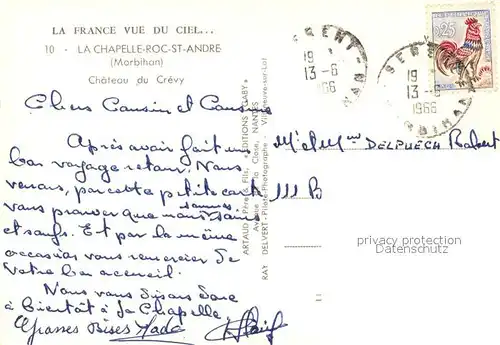 LA FRANCE VUE DU CIEL...
10 - LA CHAPELLE-ROC-ST-ANDRE
(Morbihan)
Château du Crévy
Chers Cousin et Cousine
Après avoir fait un
bon voyage retour. Nous
venons, par cette petite carte
vous prouver que nous sommes sains
et saufs. Et par la même
occasion vous remercier de
votre bon accueil.
Nous vous disons donc
à bientôt à La Chapelle
Grosses Bises
ARTAUD Père & Fils, « EDITIONS GABY »
Avenue de la Close, NANTES
RAY DELVERT - Pilote-Photographe - Villeneuve-sur-Lot
SERENT
19
13-6
1966
MORBIHAN
SERENT
19
13-6
1966
MORBIHAN
0,25
M et Mme DELPUECH Robert
111 B
privacy protection
Datenschutz